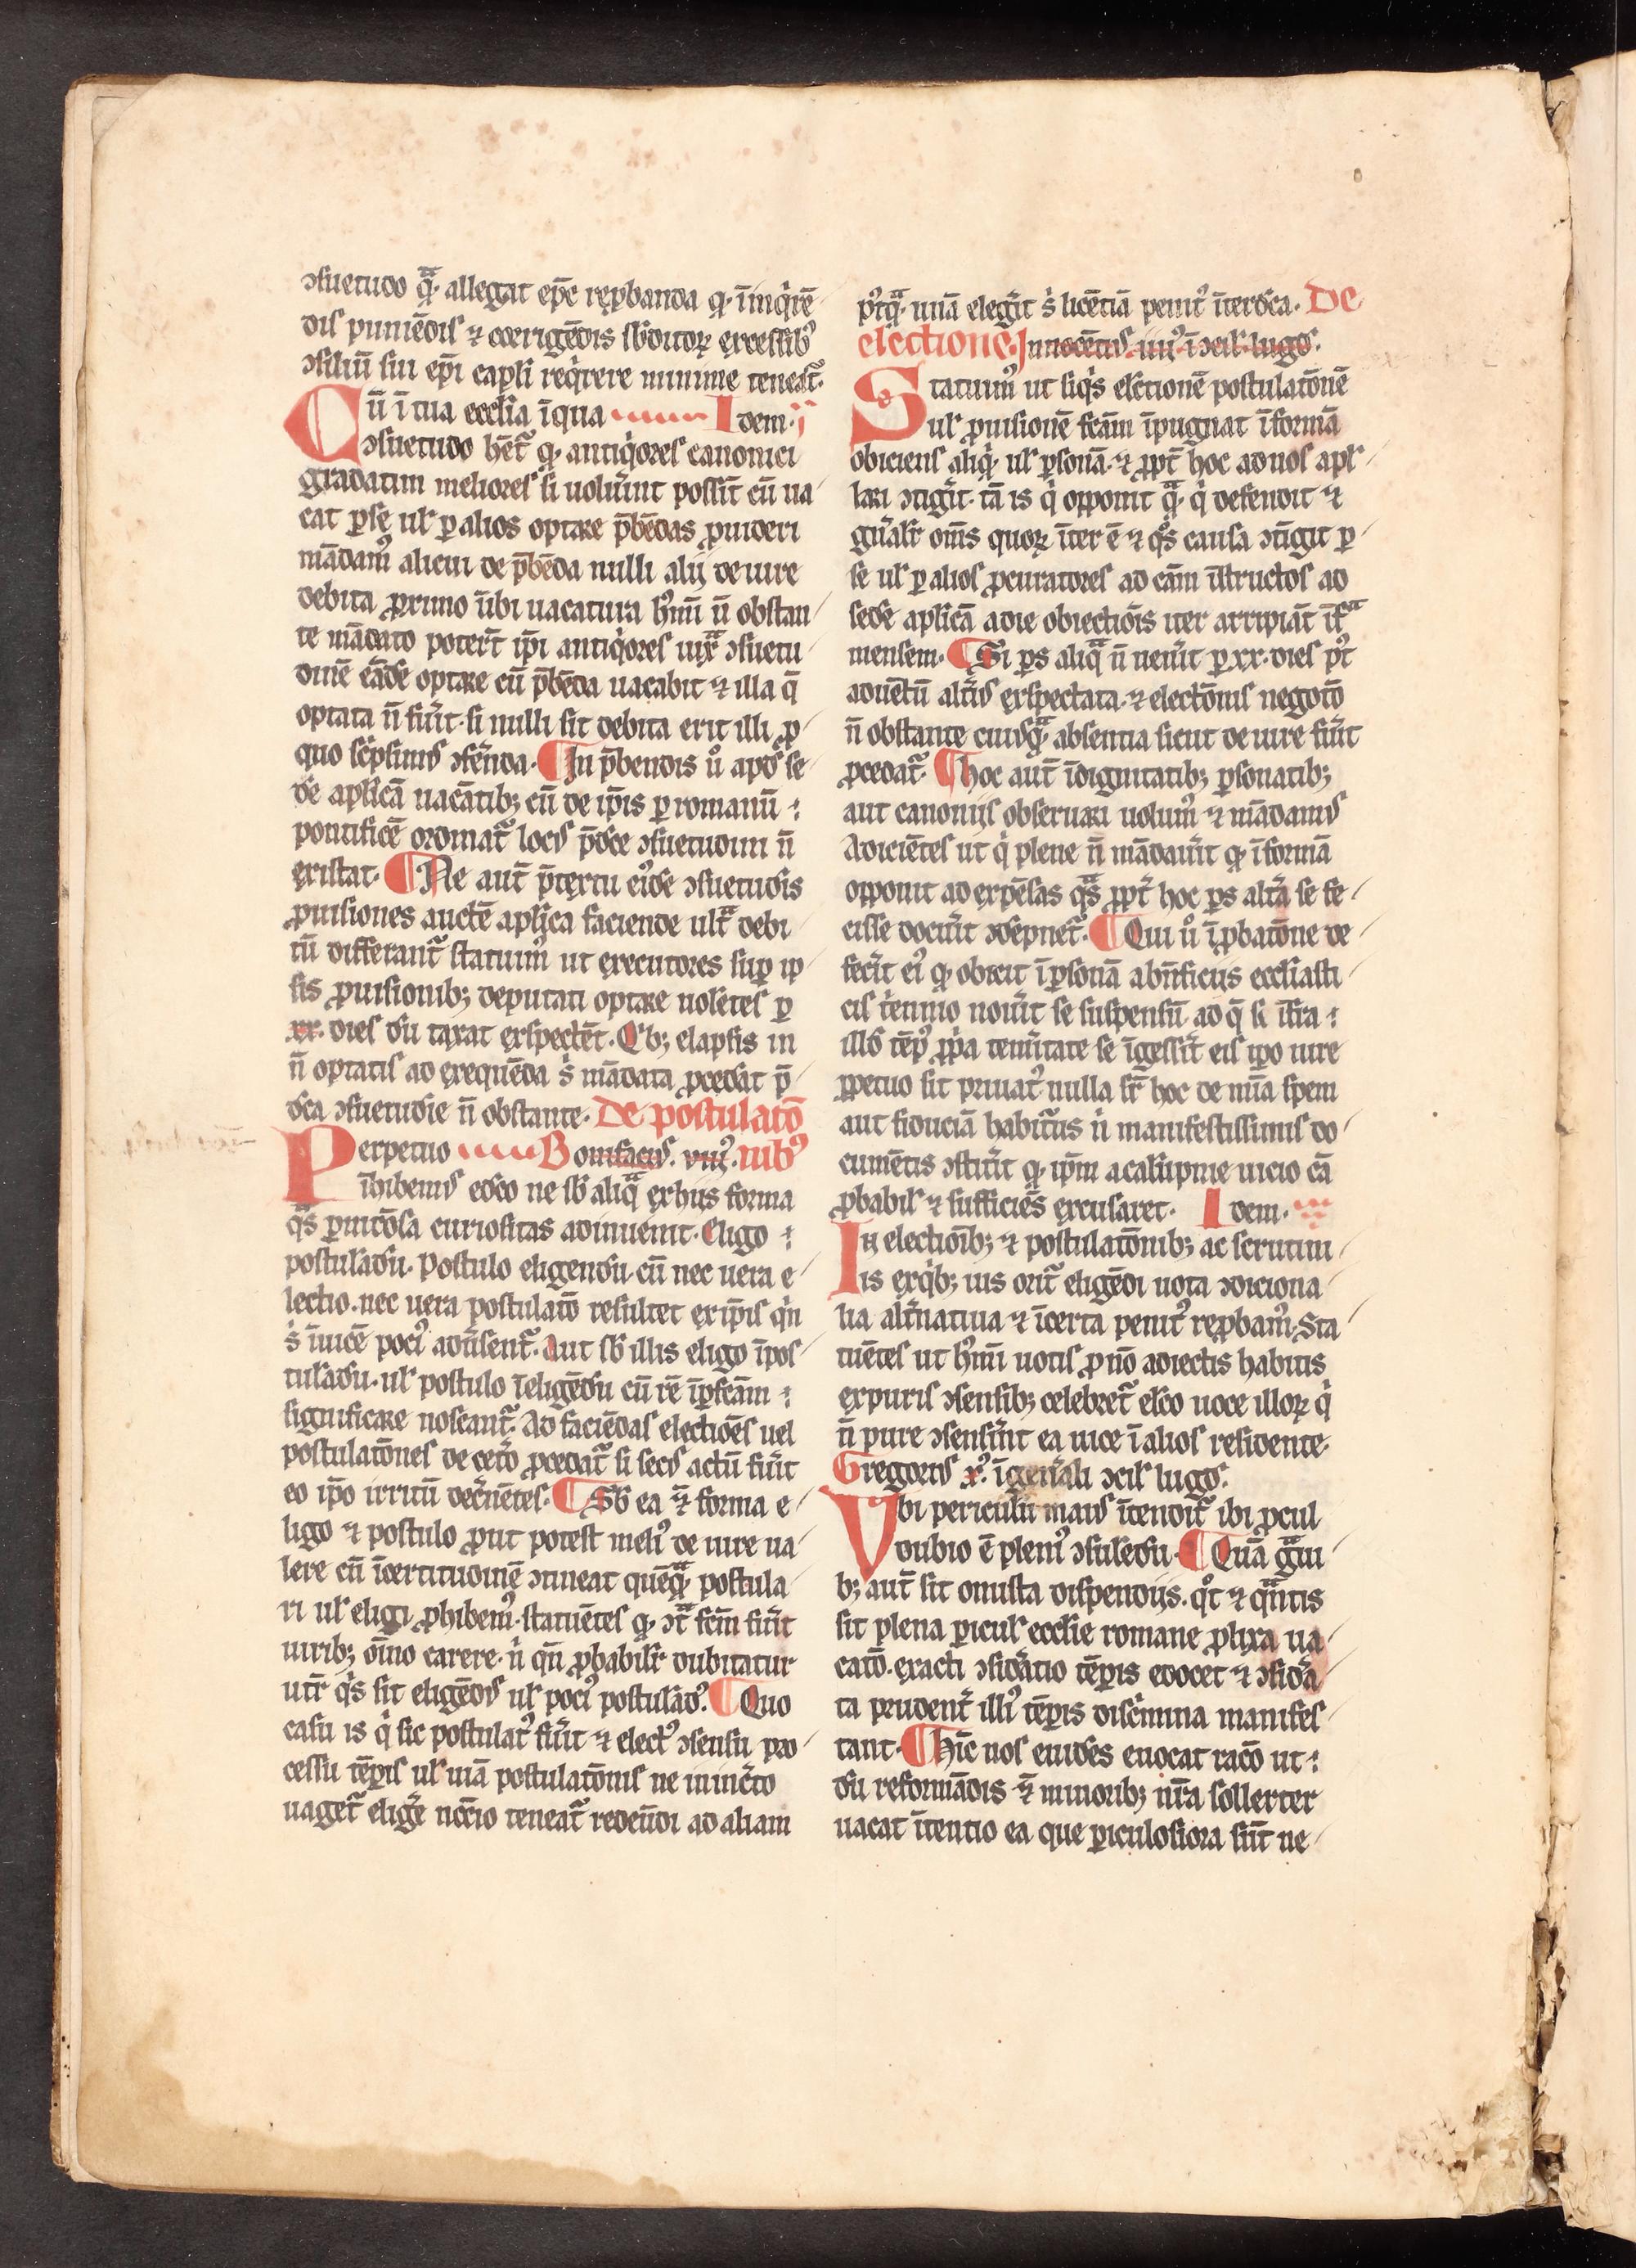 ↄsuetudo q̄ꝫ allegat ep̄e rep̱banda ꝙ īinq̇rē
dis puniēdis ⁊ coerrigēdis sb̄ditoꝝ excessibꝰ
ↄsiliū sui ep̄i capl̓i req̇rere minime teneat᷑
Cū ī tua eccl̓ia īqua Idem
ↄsuetudo hēt᷑ ꝙ antiq̇ores canonici
gradatim meliores si uolu̓int possīt cū ua
cat ꝑse ul̓ ꝑ alios optare p̄bēdas ꝓuideri
mādamꝰ alicui de p̄bēda nulli alij de iure
debita ꝓximo ūbi uacatura hꝰmōi ū obstan
te mādato poter̄t ip̄i antiq̇ores iuxᵃ ↄsuetu
dinē eādē optare cū p̄bēda uacabit ⁊ illa q̄
optata n̄ fu̓it si nulli sit debita erit illi ꝓ
quo sc̓psimꝰ ↄfe̓nda. ¶ In p̄bendis u̓o apd̓ se
dē aplicā uacātibꝫ cū de ip̄is ꝑ romanū
pontificē ordinat᷑ locꝰ p̄dc̄e ↄsuetudini n̄
existat. ¶ Ne aut̄ p̄textu eiꝰdē ↄsuetudīs
ꝓuisiones auctē aplica faciende ultᵃ debi
tū differant᷑ statuimꝰ ut executores suꝑ ip
sis ꝓuisionibꝫ deputati optare uolētes ꝑ
xx. dies dū taxat exspectēt. Qͥbꝫ elapsis in
n̄ optatis ad exequēda s̓ mādata ꝓcedāt p̄
dc̄a ↄsuetudīe n̄ obstante. De postulatō
Perpetuo Bonifaciꝰ. viijꝰ. nibꝰ
īhibemꝰ edc̄o ne sb̄ aliq̄ exhijs forma
qᵃs ꝑnicōsa curiositas adinuenit. Eligo
postulādū. Postulo eligendū. cū nec uera e
lectio. nec uera postulatō resultet ex ip̄is q̇n
s̓ īuicē pociꝰ adu̓sent᷑. Aut sb̄ illis eligo īpos
tulādū. ul̓ postulo īeligēdū cū rē īꝑfcām
significare noscant᷑. Ad faciēdas electiōes uel
postulatōnes de cet̓o ꝓcedat᷑ si secꝰ actū fu̓it
eo ip̄o irritū dec̓nētes. ¶ Sb̄ ea ⁊̄ forma e
ligo ⁊ postulo ꝓut potest meliꝰ de iure ua
lere cū īcertitudinē ↄtineat quēqᵃꝫ postula
ri ul̓ eligi ꝓhibemꝰ. statuētes ꝙ ↄtᵃ fcm̄ fu̓it
uiribꝫ oīno carere. n̓ qn̄ ꝓbabilr̄ dubitatur
utr̄ q̇s sit eligēdꝰ ul̓ pociꝰ postulādꝰ. ¶ Quo
casu is q̇ sic postulatꝰ fu̓it ⁊ electꝰ ↄsensu pro
cessu tēꝑis ul̓ uiā postulatōnis ne in inc̓to
uaget᷑ elige̓ nōcio teneat᷑ redeūdi ad aliam
pꝰtqᵃꝫ unā elegīt s̓ licētiā penitꝰ īterdc̄a. De
electione. Innocētiꝰ iiijꝰ ī ↄcil̓ lugd̓.
Statuimꝰ ut siq̇s elc̄tionē postulatōnē
ul̓ ꝓuisionē fcām īpugnat īformā
obiciens aliq̇ꝫ ul̓ ꝑsonā. ⁊ ꝓpt̓ hoc ad nos apl̓
lari ↄtigīt. tā is q̇ opponit qᵃꝫ q̇ defendit ⁊
gn̄alr̄ oms̄ quoꝝ īter ē ⁊ q̊s causa ↄtīgit ꝑ
se ul̓ ꝑ alios ꝓcuratores ad cām īstructos ad
sedē aplicā adie obiectiōis iter arripiāt īfᵃ
mensem. ¶ Si ps̄ aliqᵃ n̄ uen̓it ꝑ xx. dies pꝰt
aduētū alt̓iꝰ exspectata. ⁊ electōnis negoto
n̄ obstante cuiusqᵃꝫ absentia sicut de iure fu̓it
ꝓcedat᷑. ¶ hoc aut̄ īdignitatibꝫ ꝑsonatibꝫ
aut canonijs obseruari uolumꝰ ⁊ mādamꝰ
Adiciētes ut q̇ plene n̄ mādau̓it ꝙ īformā
opponit ad expēsas qᵃs ꝓpt̓ hoc ps̄ alt̓a se fe
cisse docu̓it ↄdēpnet᷑. ¶ Qui u̓o īꝓbatōne de
fec̓it eiꝰ ꝙ obiecit īꝑsonā abn̄ficijs eccl̓iasti
cis t̓ennio nou̓it se suspensū. ad q̄ si īfra
illd̓ tēpꝰ ꝓp̓a tem̓itate se īgessit eis ip̄o iure
ꝑpetuo sit priuatꝰ nulla sr̄ hoc de mīa spem
aut fiduciā habiturus n̓ manifestissimis do
cumētis ↄstit̓it ꝙ ip̄m acalūpnie uicio cā
ꝓbabil̓ ⁊ sufficiēs excusaret. Idem.
In electiōibꝫ ⁊ postulatōnibꝫ ac scrutini
is exq̇bꝫ ius orit᷑ eligēdi uota ↄdiciona
lia alt̓natiua ⁊ īcerta penitꝰ rep̱bamꝰ. Sta
tuētes ut hꝰmōi uotis ꝓ nō adiectis habitis
expuris ↄsensibꝫ celebret᷑ elc̄o uoce illoꝝ q̇
n̄ pure ↄsens̓int ea uice ī alios residente.
Gregoriꝰ xꝰ. īgen̓ali ↄcil̓ lugd̓.
Vbi periculū maiꝰ ītendit᷑ ibi ꝓcul
dubio ē pleniꝰ ↄsulēdū. ¶ Quā gᵃui
bꝫ aut̄ sit onusta dispendijs. q̊t ⁊ qᵃntis
sit plena ꝑicul̓ eccl̓ie romane ꝓlixa ua
catō. exacti ↄsid̓atio tēꝑis edocet ⁊ ↄsid̓a
ta prudent̓ illiꝰ tēꝑis disc̓imina manifes
tant. ¶ hīc nos euidēs euocat racō ut
dū reformādis ⁊̄ minoribꝫ nr̄a sollerter
uacat ītentio ea que ꝑiculosiora sūt ne